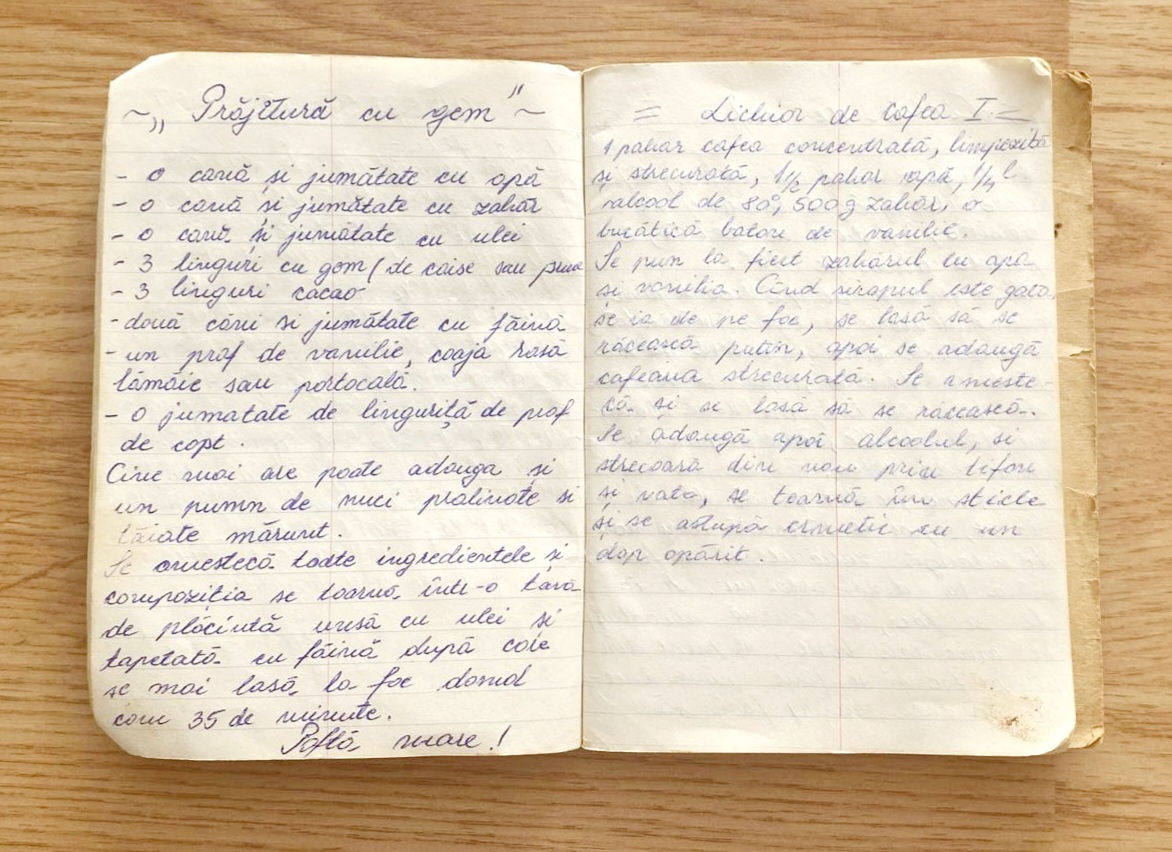 ~ „Prăjitură cu gem" ~
- o cană și jumătate cu apă
- o cană și jumătate cu zahăr
- o cană și jumătate cu ulei
- 3 linguri cu gem (de caise sau prune
- 3 linguri cacao
- două căni și jumătate cu făină
- un praf de vanilie, coaja rasă
lămâie sau portocală.
- o jumatate de linguriță de praf
de copt.
Cine mai are poate adauga și
un pumn de nuci pralinate și
tăiate mărunt.
Se amestecă toate ingredientele și
compoziția se toarnă într-o tavă
de plăcintă unsă cu ulei și
tapetată cu făină după care
se mai lasă la foc domol
cam 35 de minute.
Poftă mare!
= Lichior de cafea I =
1 pahar cafea concentrată, limpezită
și strecurată, 1½ pahar apă, 1/4 l
alcool de 80°, 500 g zahăr, o
bucățică baton de vanilie.
Se pun la fiert zahărul cu apa
și vanilia. Cînd siropul este gata,
se ia de pe foc, se lasă să se
răcească puțin, apoi se adaugă
cafeaua strecurată. Se ameste-
că și se lasă să se răcească.
Se adaugă apoi alcoolul, si
strecoară din nou prin tifon
și vata, se toarnă în sticle
și se astupă ermetic cu un
dop opărit.